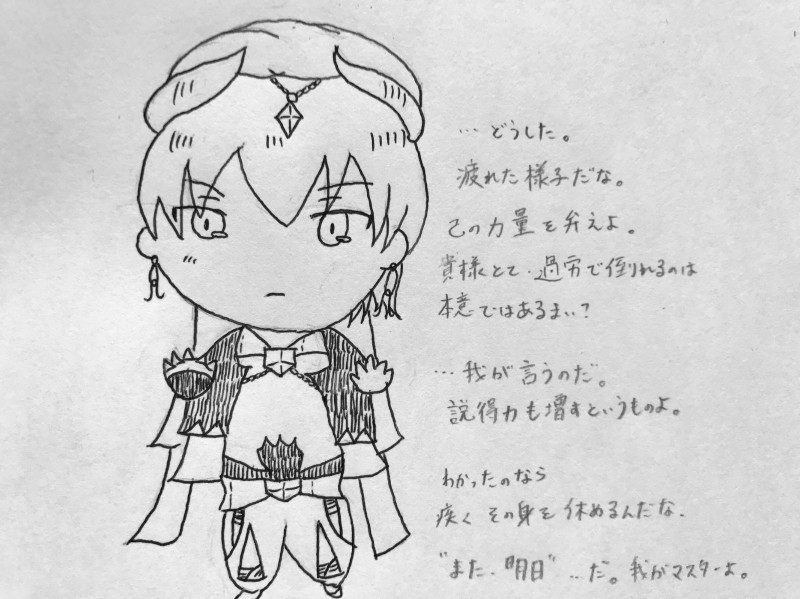 …どうした。
疲れた様子だな。
己の力量を弁えよ。
貴様とて、過労で倒れるのは
本意ではあるまい？
…我が言うのだ。
説得力も増すというものよ。
わかったのなら
疾く その身を休めるんだな.
"また、明日"…だ。我がマスターよ。